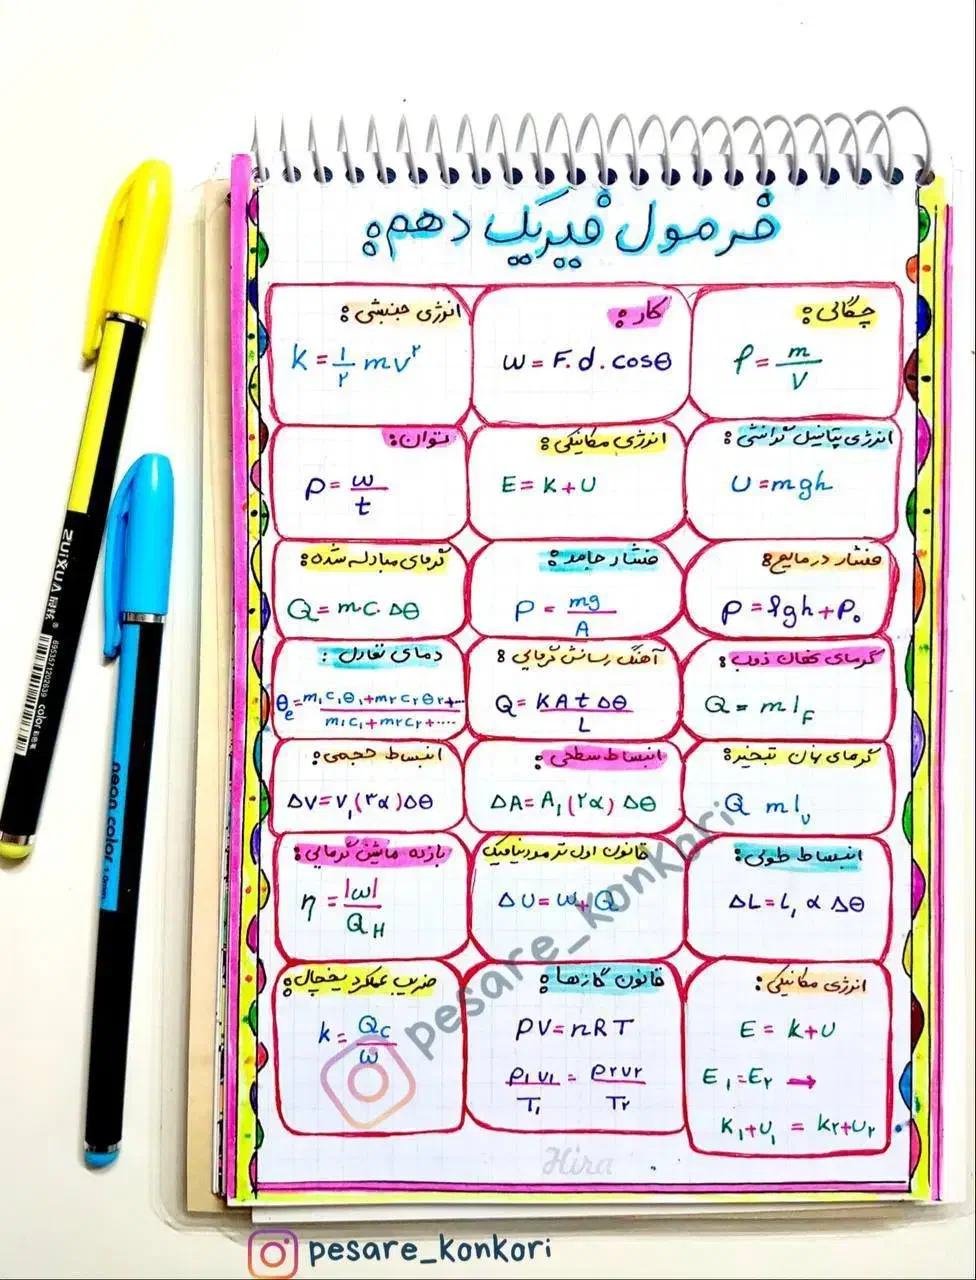 فرمول فیزیک دهم:
چگالی:
ρ = m/V
کار:
W = F.d.cosθ
انرژی جنبشی:
K = ۱/۲ mv^۲
انرژی پتانیل گرانشی:
U = mgh
انرژی مکانیکی:
E = K + U
توان:
P = W/t
فشار در مایع:
P = ρgh + P₀
فشار جامد:
P = mg/A
گرمای مبادله شده:
Q = mc.Δθ
گرمای نهان ذوب:
Q = mL_F
آهنگ رسانش گرمایی:
Q = KAtΔθ/L
دمای تعادل:
θe = m₁c₁θ₁+m۲c۲θ۲+.../m₁c₁+m۲c۲+....
گرمای نهان تبخیر:
Q mL_v
انبساط سطحی:
ΔA = A₁(۲α)Δθ
انبساط حجمی:
ΔV = V₁(۳α)Δθ
انبساط طولی:
ΔL = L₁αΔθ
قانون اول ترمودینامیک
ΔU = W+Q
بازده ماشین گرمایی:
η = |W|/Q_H
انرژی مکانیکی:
E = K+U
E₁ = E۲ →
K₁+U₁ = K۲+U۲
قانون گازها:
PV = nRT
P₁V₁/T₁ = P۲V۲/T۲
ضریب عملکرد یخچال:
K = Qc/W
pesare_konkori
Hira
pesare_konkori
ZUIXUA
6953571202639
color
neon color 1.0mm